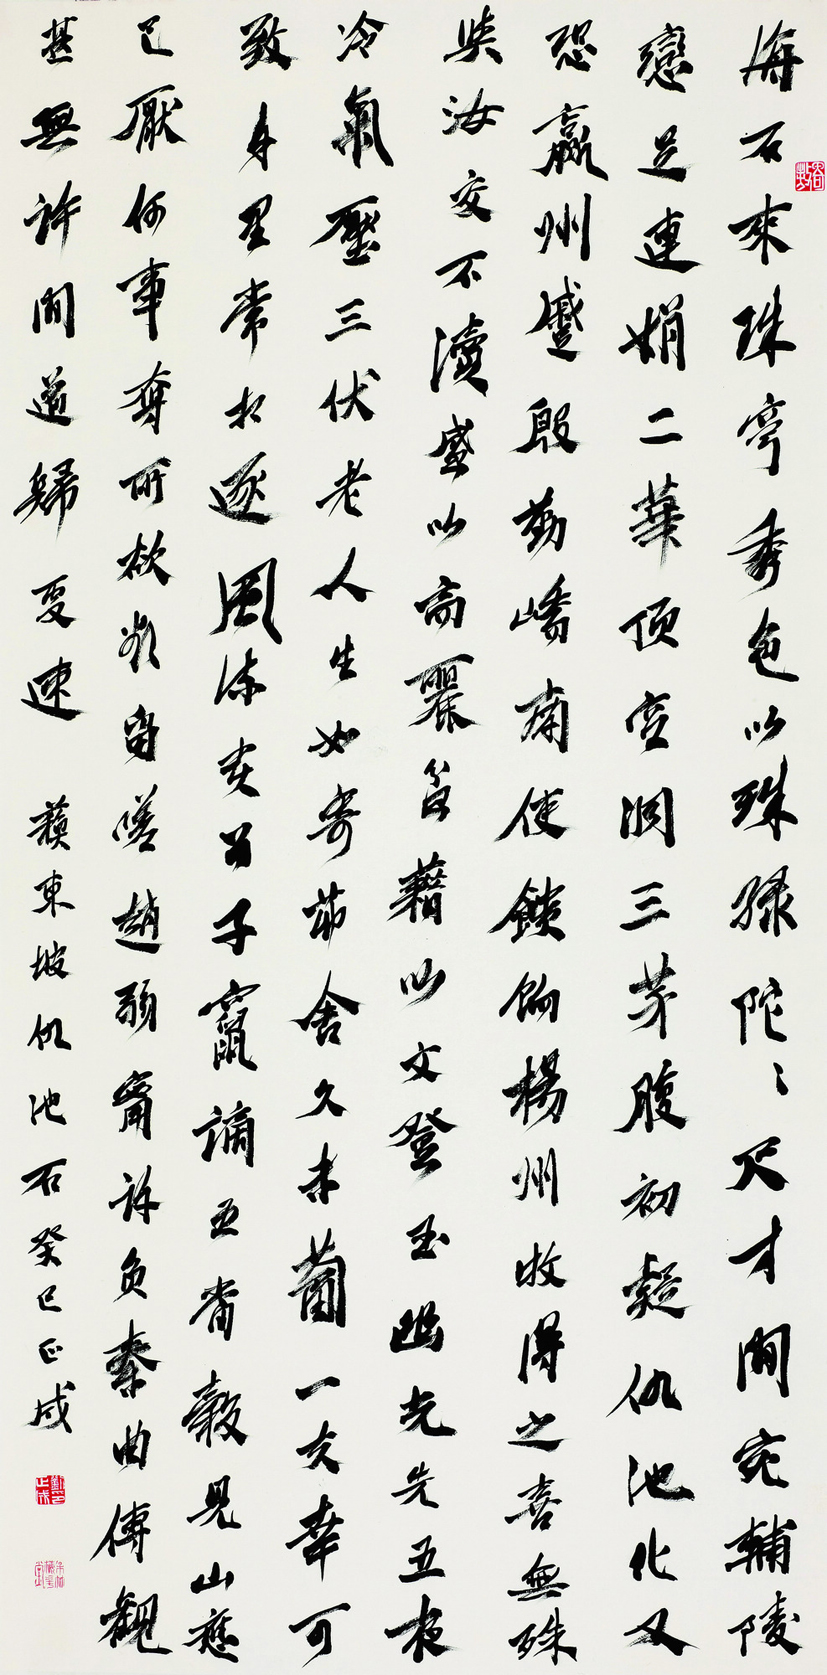 海石來珠宮秀色以珠綠陀〻尺寸間宛轉陵
巒足連娟二華頂空洞三茅腹初疑仇池化又
恐嬴州蹙殷勤嶠南使饋餉楊州牧得之喜無殊
與汝交不瀆盛以高麗盆藉以文登玉幽光先五夜
冷氣壓三伏老人生如寄茆舍久未蔔一夫幸可
致千里常相逐風流貴公子竄謫五當穀見山應
已厭何事奪所欲欲留嗟趙弱寧許負秦曲傳觀
甚無許間道歸更速 蘇東坡仇池石癸巳正成